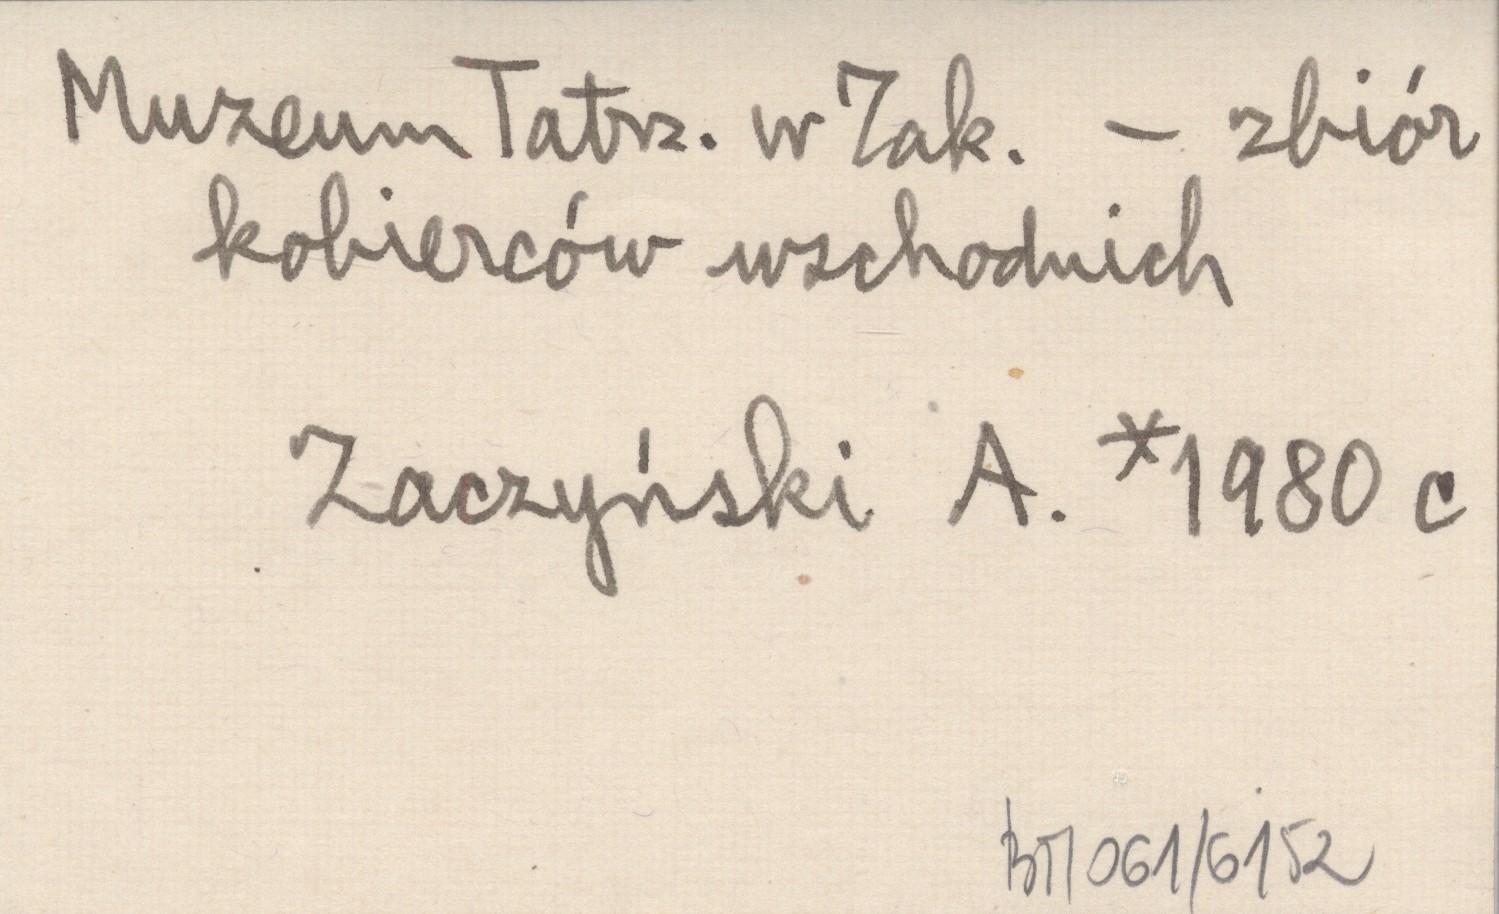 Muzeum Tatrz. w Zak. – zbiór
kobierców wschodnich
Zaczyński A. *1980 c
BT/061/6152